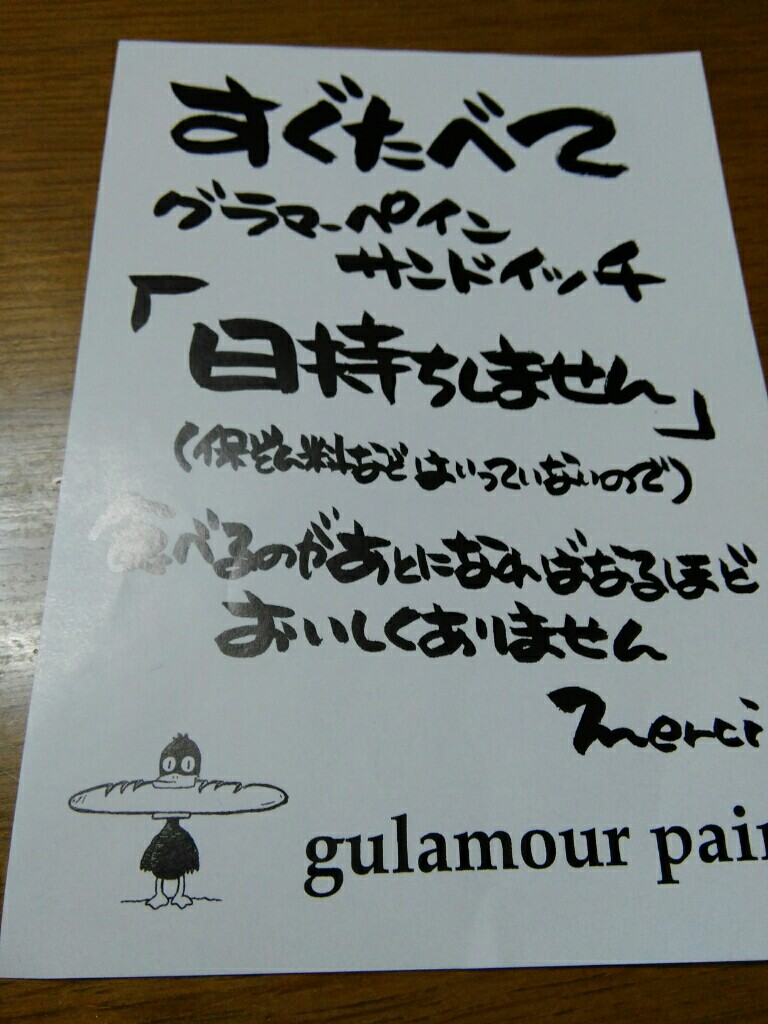 すぐたべて
グラマーペイン
サンドイッチ
「日持ちしません」
(保存料などはいっていないので)
食べるのがあとになればなるほど
おいしくありません
Merci
gulamour pain